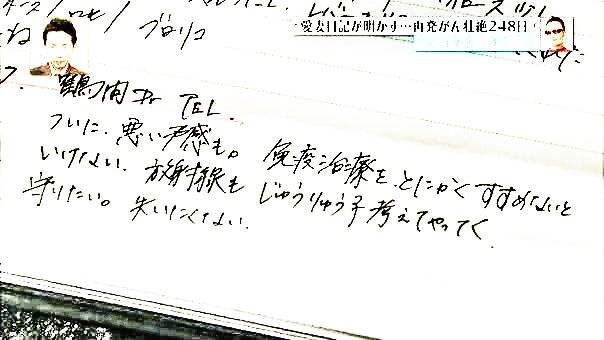 愛妻日記が明かす…再発がん壮絶248日
ね ブロリコ
鶴間Dr TEL.
ついに、悪い予感も。 免疫治療を、とにかくすすめないと
いけない。放射線も じゅうりゅう子考えてやってく
守りたい。失いたくない。